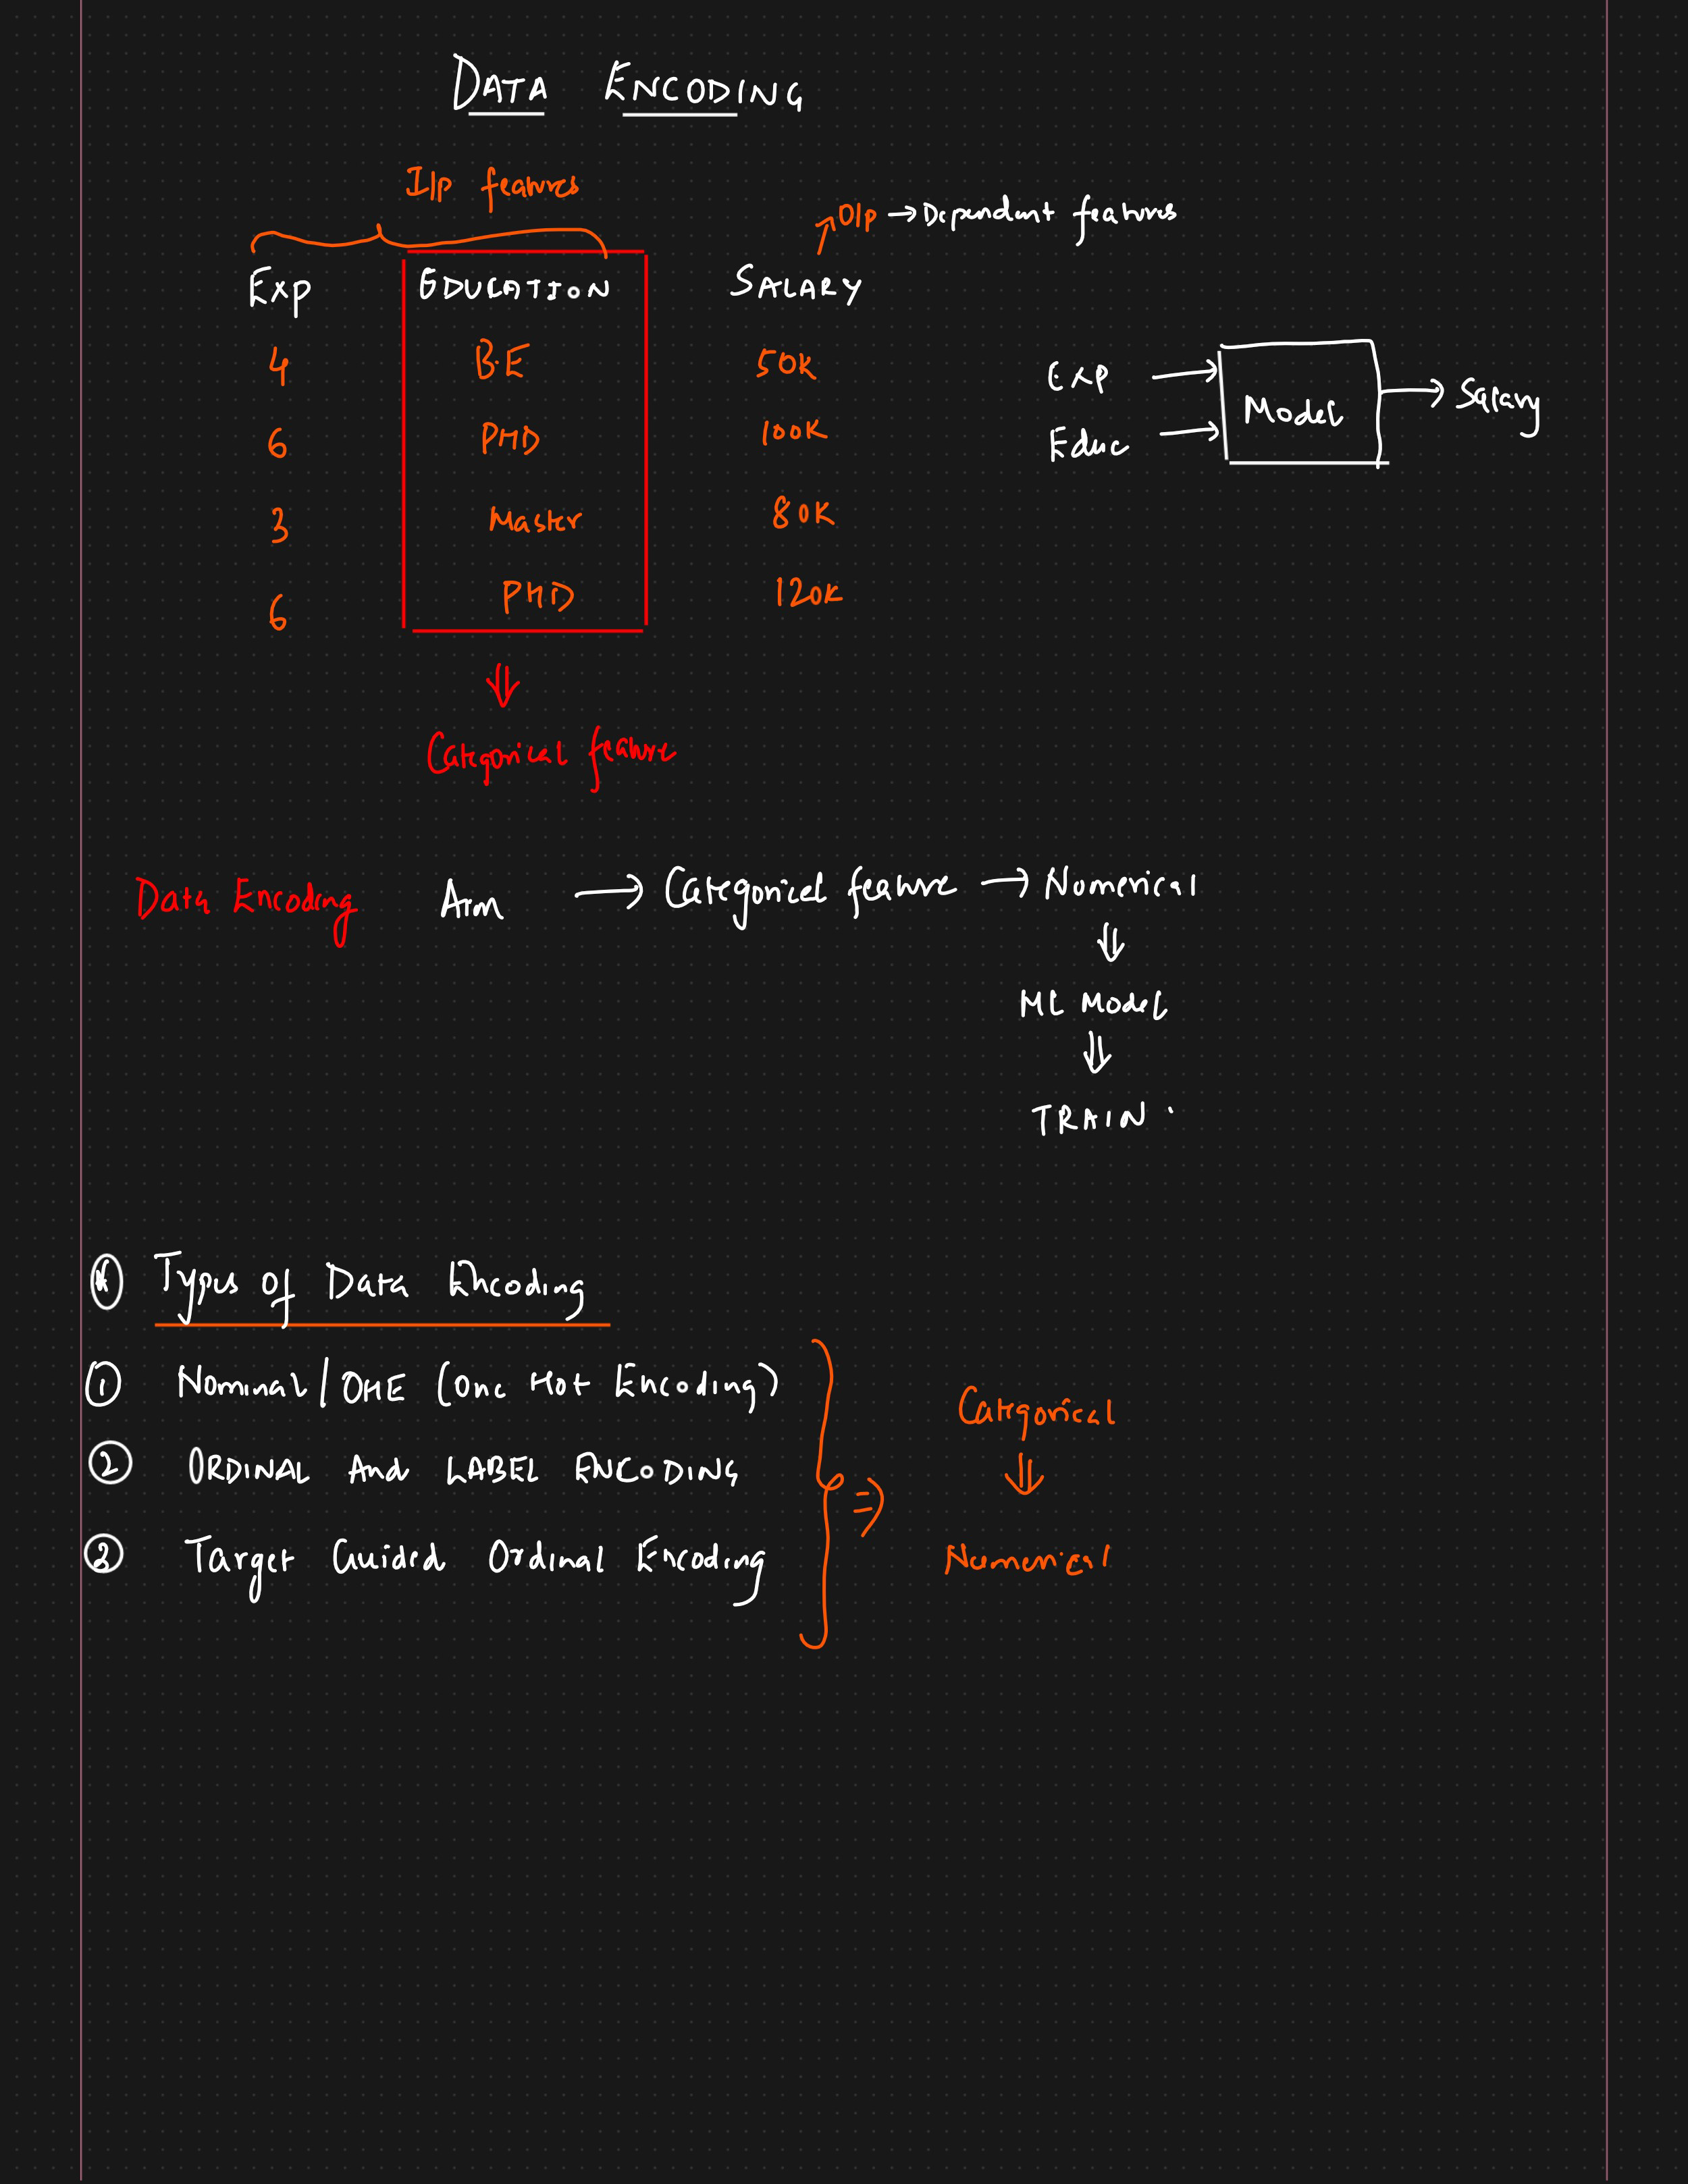 DATA ENCODING
I/p features
O/p → Dependent features
Exp EDUCATION SALARY
4 B.E 50K
6 PHD 100K
3 Master 80K
6 PHD 120K
Exp → Model → Salary
Educ →
⇓
Categorical feature
Data Encoding Aim → Categorical feature → Numerical
⇓
ML Model
⇓
TRAIN .
* Types of Data Encoding
① Nominal / OHE (One Hot Encoding)
② ORDINAL And LABEL ENCODING
③ Target Guided Ordinal Encoding
⇒ Categorical
⇓
Numerical